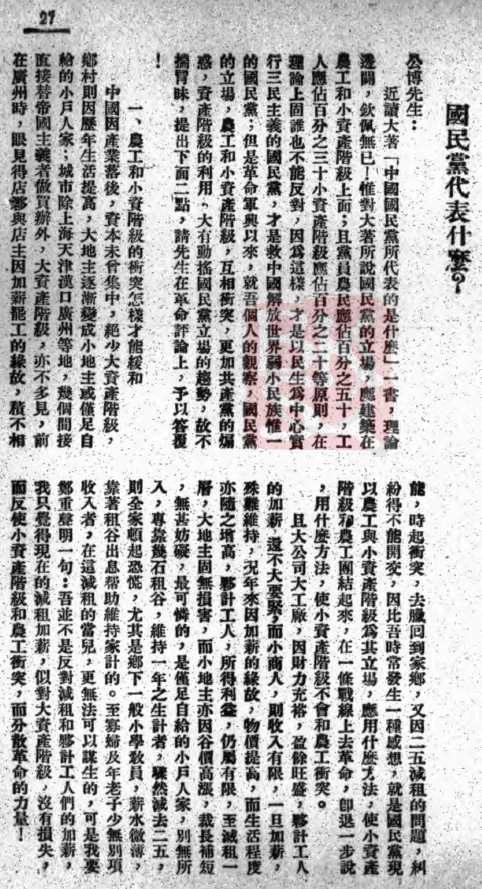 27
國民黨代表什麽？
公博先生：
近讀大著「中國國民黨所代表的是什麽」一書，理論
透闢，欽佩無已！惟對大著所說國民黨的立場，應建築在
農工和小資產階級上面；且黨員農民應佔百分之五十，工
人應佔百分之三十小資產階級應佔百分之二十等原則，在
理論上固誰也不能反對，因為這樣，才是以民生為中心實
行三民主義的國民黨，才是救中國解放世界弱小民族惟一
的國民黨；但是革命軍興以來，就吾個人的觀察，國民黨
的立場，農工和小資產階級，互相衝突，更加共產黨的煽
惑，資產階級的利用，大有動搖國民黨立場的趨勢，故不
揣冒昧，提出下面二點，請先生在革命評論上，予以答覆
！
一、農工和小資階級的衝突怎樣才能緩和
中國因產業落後，資本未曾集中，絕少大資產階級，
鄉村則因歷年生活提高，大地主逐漸變成小地主或僅足自
給的小戶人家；城市除上海天津漢口廣州等地，幾個間接
直接替帝國主義者做買辦外，大資產階級，亦不多見，前
在廣州時，眼見得店夥與店主因加薪罷工的緣故，積不相
能，時起衝突，去臘回到家鄉，又因二五減租的問題，糾
紛得不能開交，因此吾時常發生一種感想，就是國民黨現
以農工與小資產階級為其立場，應用什麽方法，使小資產
階級和農工團結起來，在一條戰線上去革命，卽退一步說
，用什麽方法，使小資產階級不會和農工衝突。
且大公司大工廠，因財力充裕，盈餘旺盛，夥計工人
的加薪，還不大要緊，而小商人，則收入有限，一旦加薪，
殊難維持，況年來因加薪的緣故，物價提高，而生活程度
亦隨之增高，夥計工人，所得利益，仍屬有限，至減租一
層，大地主固無損害，而小地主亦因谷價高漲，裁長補短
，無甚妨礙，最可憐的，是僅足自給的小戶人家，別無所
入，專靠幾石租谷，維持一年之生計者，驟然減去二五，
則全家頓起恐慌，尤其是鄉下一般小學敎員，薪水微薄，
靠著租谷出息帮助維持家計的。至寡婦及年老子少無別項
收入者，在這減租的當兒，更無法可以謀生的，可是我要
鄭重聲明一句：吾並不是反對減租和夥計工人們的加薪，
我只覺得現在的減租加薪，似對大資產階級，沒有損失，
而反使小資產階級和農工衝突，而分散革命的力量！